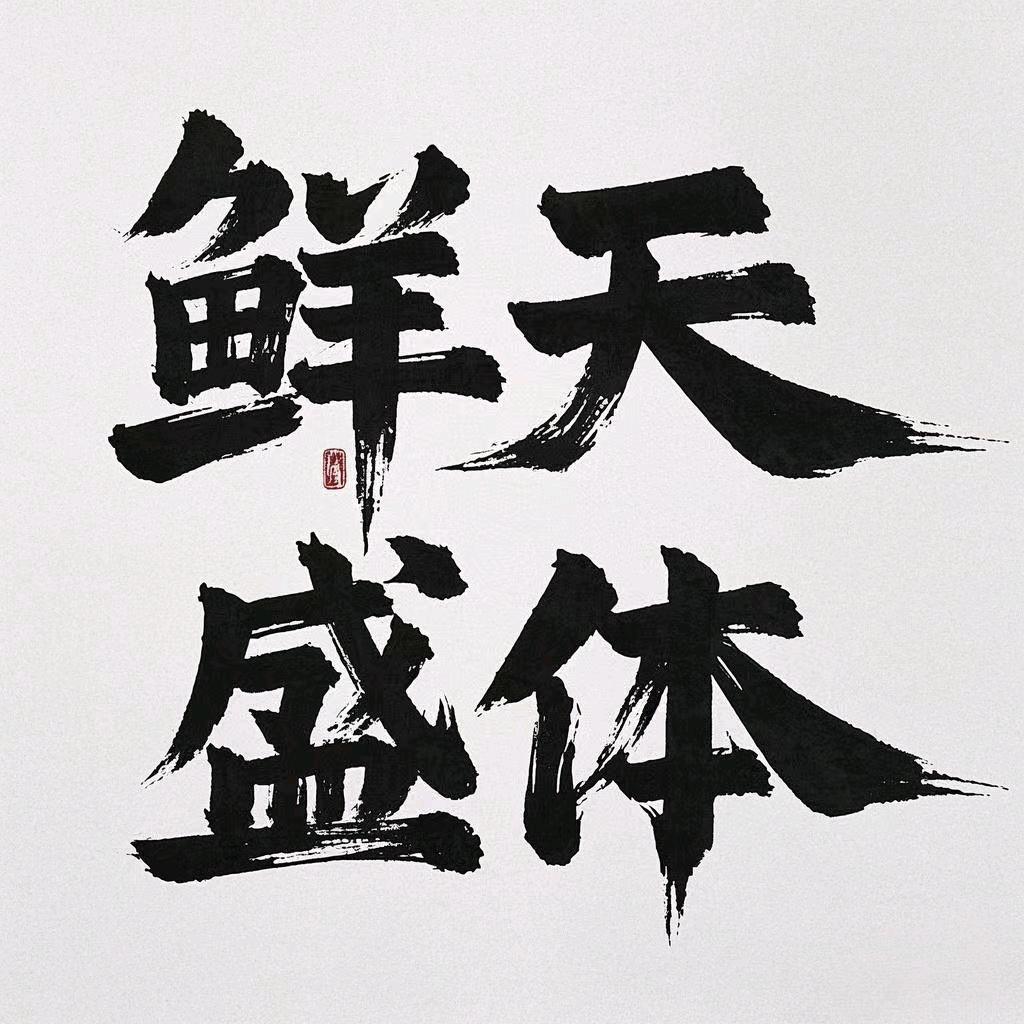 鲜天
盛体